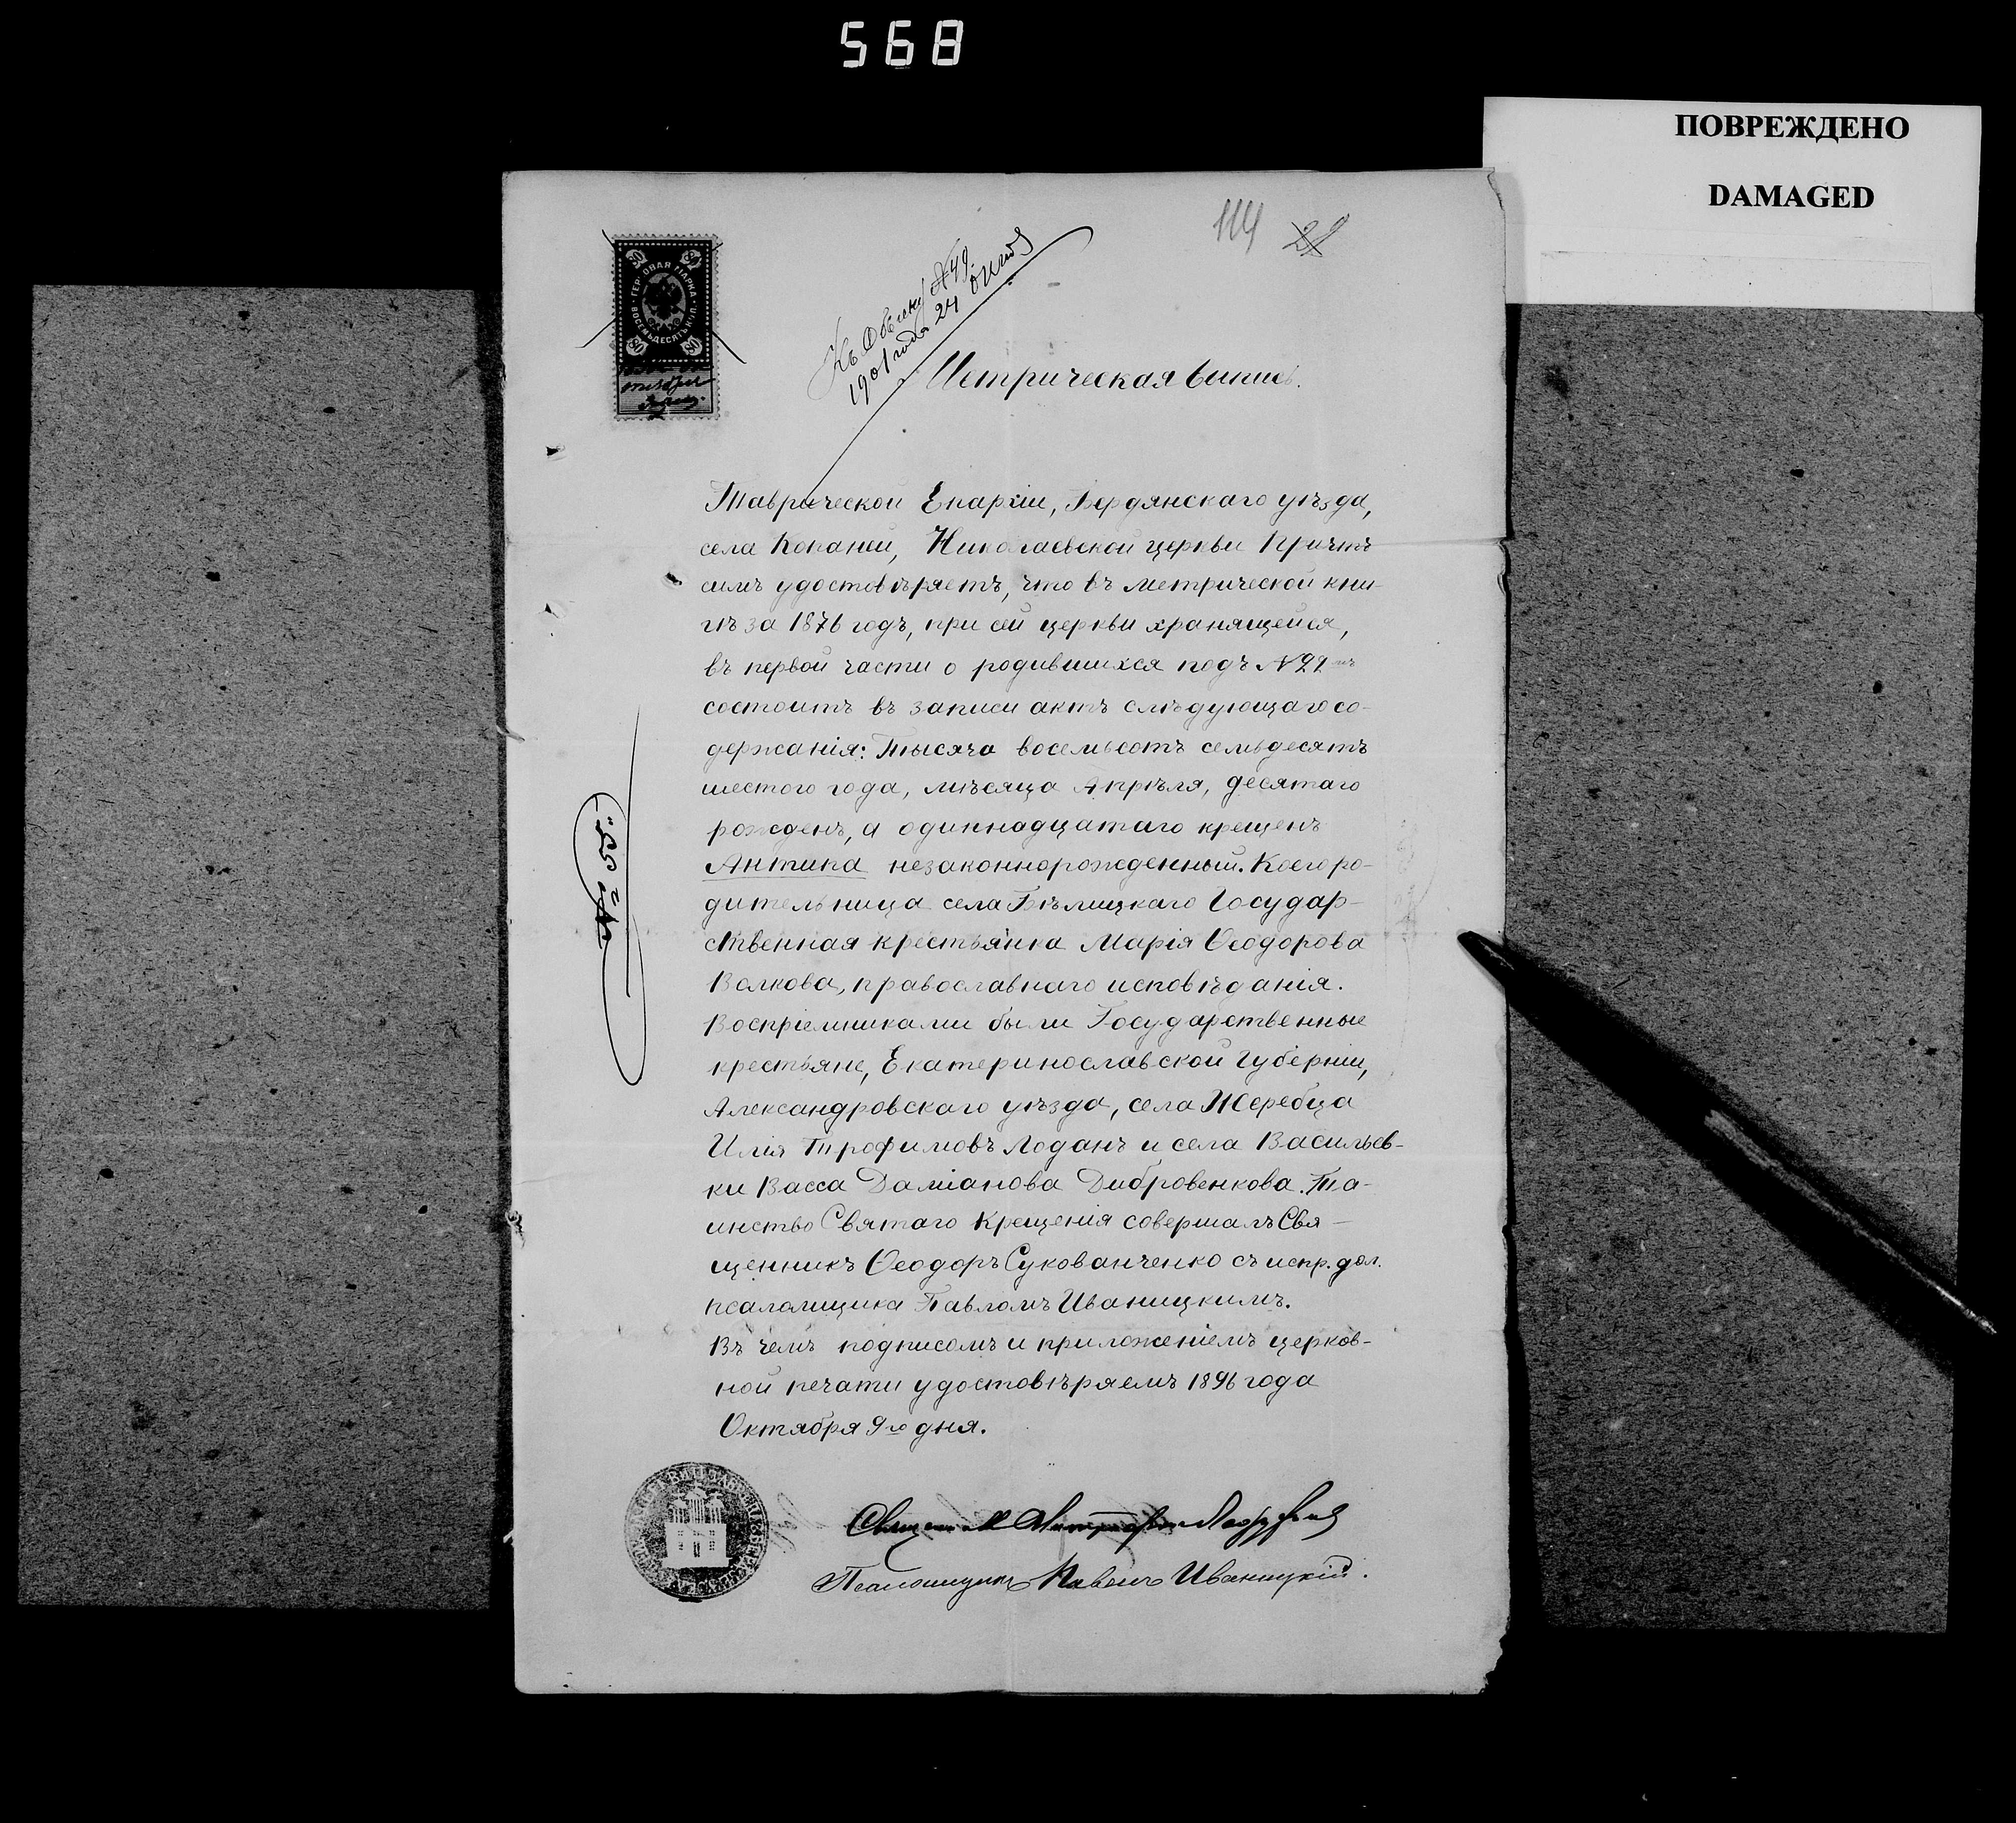 568
ПОВРЕЖДЕНО
DAMAGED
114 21
ГЕРБОВАЯ МАРКА
ВОСЕМЬДЕСЯТЪ КОП.
80 80
80 80
Къ Обыску № 49
1901 года 24
Метрическая выпись.
Таврической Епархіи, Бердянскаго уѣзда,
села Копаней, Николаевской церкви Причтъ
симъ удостовѣряетъ, что въ метрической кни-
гѣ за 1876 годъ, при сей церкви хранящейся,
въ первой части о родившихся подъ №
состоитъ въ записи актъ слѣдующаго со-
держанія: Тысяча восемьсотъ семьдесятъ
шестого года, мѣсяца Апрѣля, десятаго
рожденъ, а одиннадцатаго крещенъ
Антипа незаконнорожденный. Коего ро-
дительница села Бѣлицкаго Государ-
ственная крестьянка Марія Ѳеодорова
Волкова, православнаго исповѣданія.
Воспріемниками были Государственные
крестьяне, Екатеринославской Губерніи,
Александровскаго уѣзда, села Жеребца
Илія Трофимовъ Лоданъ и села Васильев-
ки Васса Даміанова Дибровенкова. Та-
инство Святаго Крещенія совершалъ Свя-
щенникъ Ѳеодоръ Сукованченко съ испр. дол.
псаломщика Павломъ Иваницкимъ.
Въ чемъ подписомъ и приложеніемъ церков-
ной печати удостовѣряемъ 1896 года
Октября 9го дня.
№ 55.
Священникъ Митрофанъ
Псаломщикъ Павелъ Иваницкій.